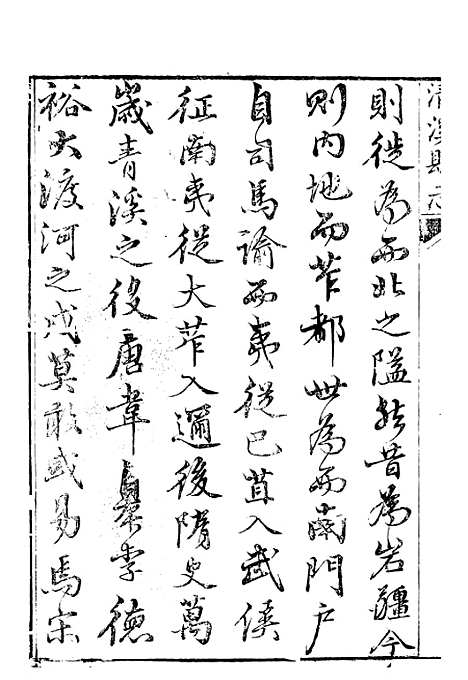 清溪縣志
則徙為西北之隘於昔為岩疆今
則內地而莋都世為西南門户
自司馬諭西夷從巴苴入武侯
征南夷從大莋入邇後隋史萬
歲青溪之役唐韋皋李德
裕大渡河之戍莫敢或易焉宋